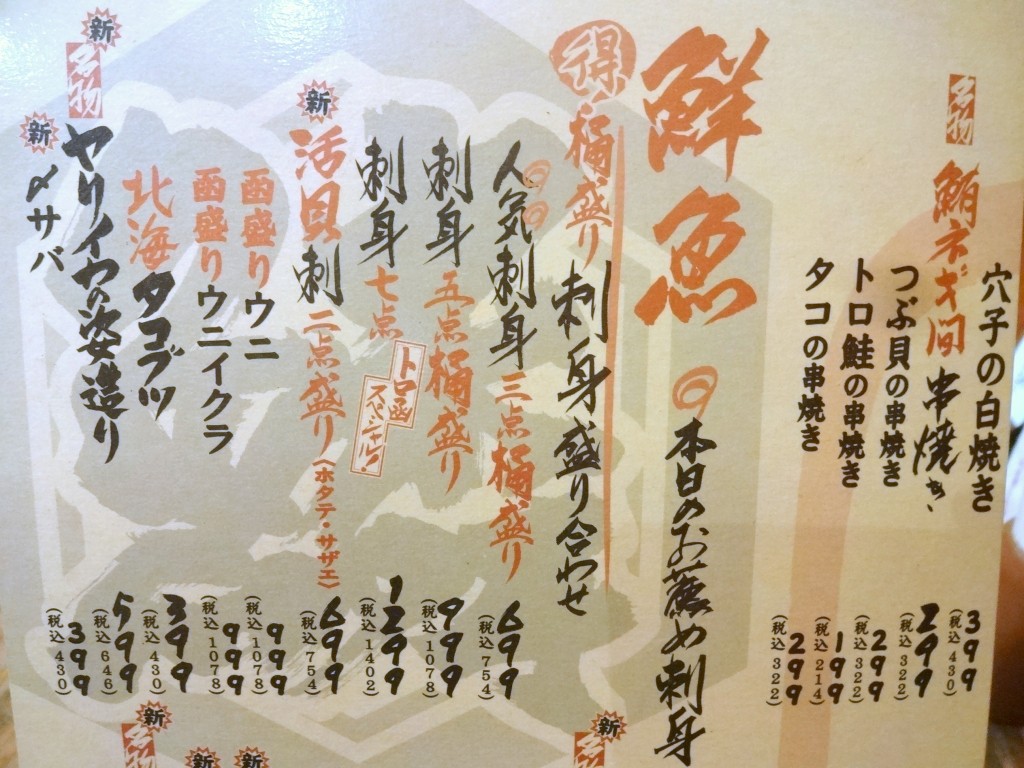 穴子の白焼き 399 (税込430)
名物 鮪ネギ間串焼き 299 (税込322)
つぶ貝の串焼き 299 (税込322)
トロ鮭の串焼き 199 (税込214)
タコの串焼き 299 (税込322)
鮮魚 本日のお薦め刺身
得 桶盛り 刺身盛り合わせ
人気刺身三点桶盛り 699 (税込754)
刺身五点桶盛り 999 (税込1078)
刺身七点 トロ函スペシャル! 1299 (税込1402)
新 活貝刺二点盛り(ホタテ・サザエ) 699 (税込754)
函盛りウニ 999 (税込1078)
函盛りウニイクラ 999 (税込1078)
北海タコブツ 399 (税込430)
新 名物 ヤリイカの姿造り 599 (税込646)
新 〆サバ 399 (税込430)
新 名物
新
新
新 名物